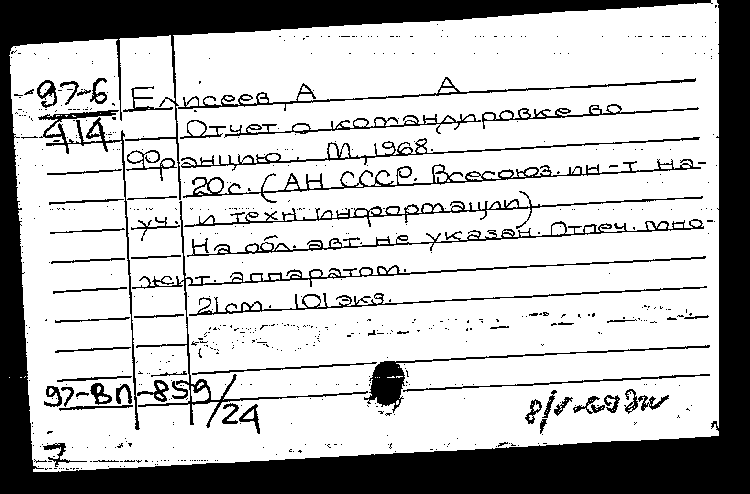 97-6 Елисеев, А А
414 Отчет о командировке во
Францию. М., 1968.
20с. (АН СССР. Всесоюз. ин-т на-
уч. и техн. информации)
На обл. авт. не указан. Отпеч. мно-
жит. аппаратом.
21см. 101 экз.
97-ВП-859/24
7